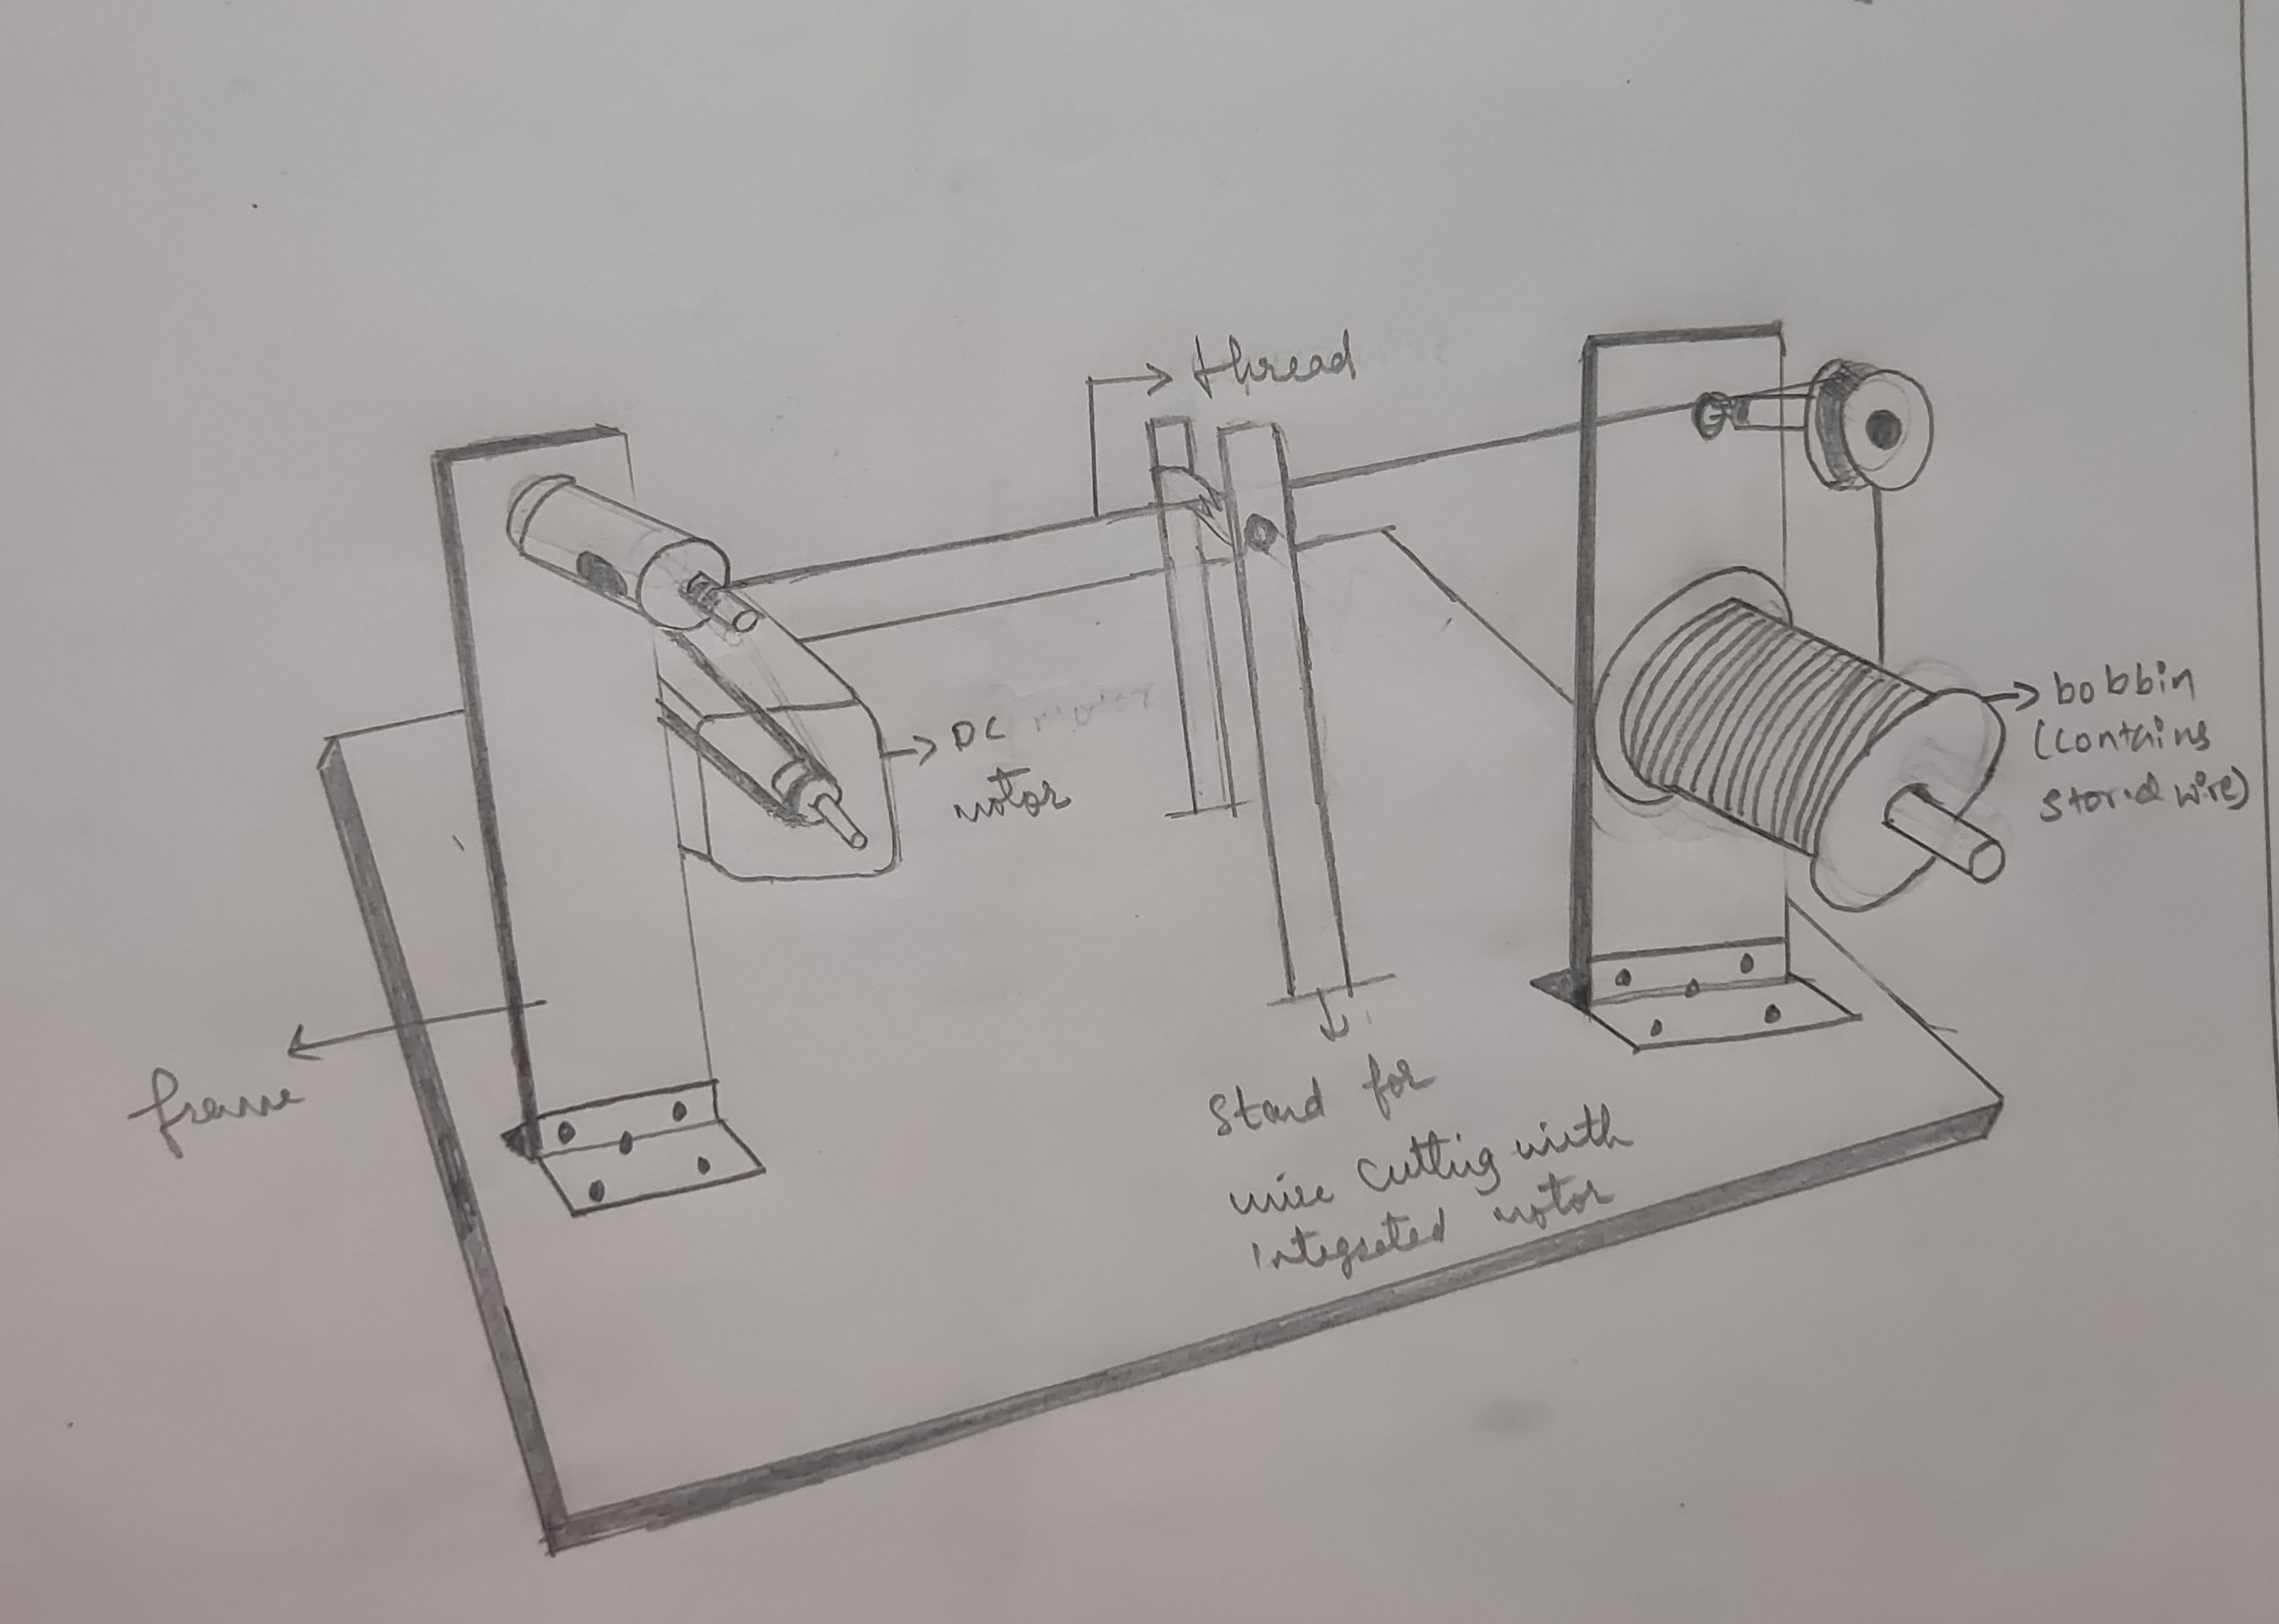 thread
DC
motor
bobbin
(contains
stored wire)
frame
Stand for
wire cutting with
integrated motor